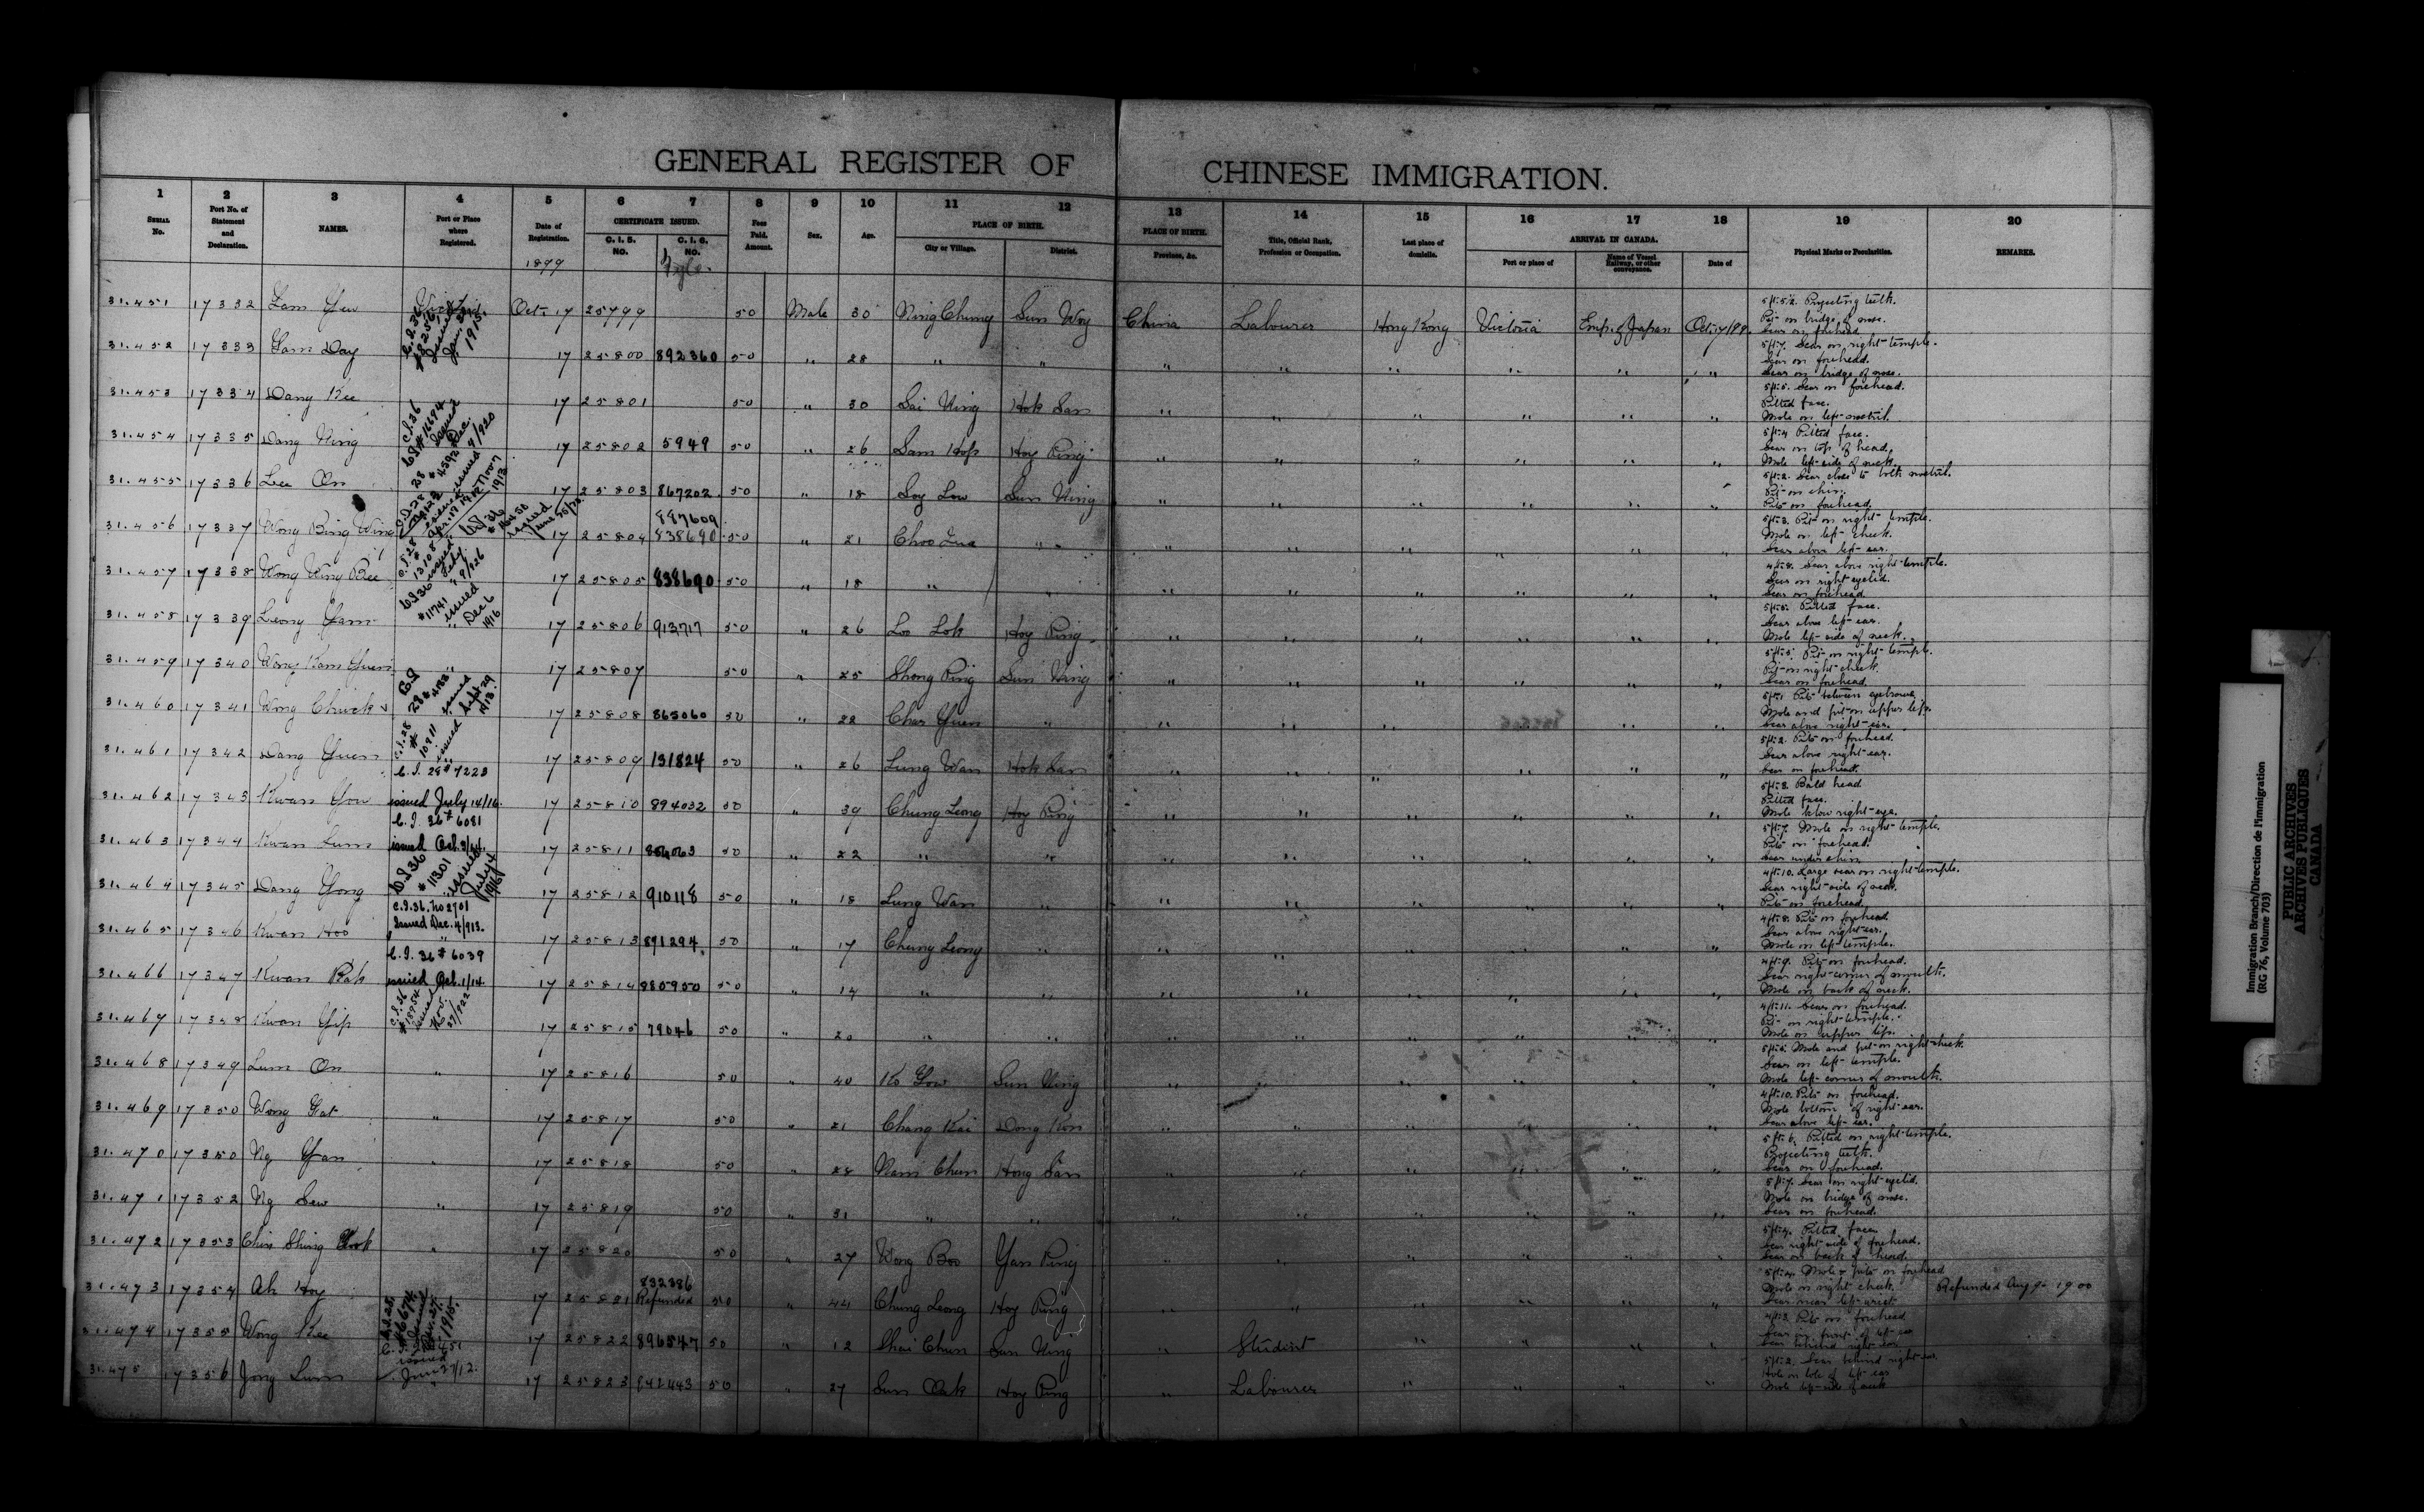 GENERAL REGISTER OF CHINESE IMMIGRATION.
1 2 3 4 5 6 7 8 9 10 11 12 13 14 15 16 17 18 19 20
SERIAL No. Port No. of Statement and Declaration. NAMES. Port or Place where Registered. Date of Registration. CERTIFICATE ISSUED. C. I. 5. NO. C. I. 6. NO. Fees Paid. Amount. Sex. Age. PLACE OF BIRTH. City or Village. District. PLACE OF BIRTH. Province, &c. Title, Official Rank, Profession or Occupation. Last place of domicile. ARRIVAL IN CANADA. Port or place of Name of Vessel Railway, or other conveyance. Date of Physical Marks or Peculiarities. REMARKS.
1899
31.451 17332 Lam Yew Oct 17 25799 50 Male 30 Ning Chung Sun Woy China Labourer Hong Kong Victoria Emp. of Japan Oct. 17/99 5 ft. 5½. Projecting teeth. Pit on bridge of nose. Scar on forehead
31.452 17333 Lam Day 17 25800 892360 50 " 28 " " " " " " " " 5 ft. 7. Scar on right temple. Scar on forehead. Scar on bridge of nose.
31.453 17334 Dang Kee 17 25801 50 " 30 Sai Ning Hok San " " " " " " 5 ft. 5. Scar on forehead. Pitted face. Mole on left nostril.
31.454 17335 Dang Ning 17 25802 5949 50 " 26 Sam Hop Hoy Ping " " " " " " 5 ft. 4 Pitted face. Scar on top of head. Mole left side of neck.
31.455 17336 Lee On 17 25803 867202 50 " 18 Soy Low Sun Ning " " " " " " 5 ft. 2. Scar close to both nostril. Pit on chin. Pits on forehead.
31.456 17337 Wong Bing Wing 17 25804 887609 838690 50 " 21 " " " " " " " " 5 ft. 3. Pit on right temple. Mole on left cheek. Scar above left ear.
31.457 17338 Wong Ning Bee 17 25805 838690 50 " 18 " " " " " " " " 4 ft. 8. Scar above right temple. Scar on right eyelid. Scar on forehead
31.458 17339 Leong Yam 17 25806 913717 50 " 26 Loo Lok Hoy Ping " " " " " " Pitted face. Scar above left ear. Mole left side of neck.
31.459 17340 Wong Kam Yuen " 17 25807 50 " 25 Shong Ping Sun Ning " " " " " " 5 ft. 5. Pit on right temple. Pit on right cheek. Scar on forehead
31.460 17341 Wong Chuck 17 25808 865060 50 " 22 Char Yuen " " " " " " " 5 ft. 1 Pit between eyebrows Mole and pit on upper lip. Scar above right ear.
31.461 17342 Dang Yuen C.I. 28 # 7223 17 25809 131824 50 " 26 Lung Wan Hok San " " " " " " 5 ft. 2. Pits on forehead. Scar above right ear. Scar on forehead.
31.462 17343 Kwan Yow issued July 14/16. C.I. 36 # 6081 17 25810 894032 50 " 39 Chung Leong Hoy Ping " " " " " " 5 ft. 8. Bald head Pitted face. Mole below right eye.
31.463 17344 Kwan Lum issued Oct. 3/14. 17 25811 50 " 22 " " " " " " " " 5 ft. 7. Mole on right temple. Pits on forehead. Scar under chin
31.464 17345 Dang Yong C.I. 36. No 2701 17 25812 910118 50 " 18 Lung Wan " " " " " " " 4 ft. 10. Large scar on right temple. Scar right side of neck. Pits on forehead.
31.465 17346 Kwan Hoo Issued Dec. 4/913. C.I. 36 # 6039 17 25813 891294 50 " 17 Chung Leong " " " " " " " 4 ft. 8. Pits on forehead Scar above right ear. Mole on left temple.
31.466 17347 Kwan Bak issued Oct. 1/14. 17 25814 880950 50 " 14 " " " " " " " " 4 ft. 9. Pits on forehead. Scar right corner of mouth. Mole on back of neck.
31.467 17348 Kwan Yip 17 25815 79046 50 " 20 " " " " " " " " 4 ft. 11. Scar on forehead. Pit on right temple. Mole on upper lip.
31.468 17349 Lum On " 17 25816 50 " 40 Ko Yow Sun Ning " " " " " " Mole and pit on right cheek. Scar on left temple. Mole left corner of mouth.
31.469 17350 Wong Gat " 17 25817 50 " 21 Chang Kai Dong Kon " " " " " " 4 ft. 10. Pits on forehead. Mole bottom of right ear. Scar above left ear.
31.470 17350 Ng Yan " 17 25818 50 " 28 Nam Chun Hong San " " " " " " 5 ft. 6. Pitted on right temple. Projecting teeth. Scar on forehead.
31.471 17352 Ng Sew " 17 25819 50 " 31 " " " " " " " " 5 ft. 7. Scar on right eyelid. Mole on bridge of nose. Scar on forehead.
31.472 17353 Chin Shing " 17 25820 50 " 27 Wong Boo Yan Ping " " " " " " 5 ft. 4. Pitted face Scar right side of forehead. Scar on back of head.
31.473 17354 Ah Hoy 17 25821 832386 Refunded 50 " 44 Chung Leong Hoy Ping " " " " " " Mole & pits on forehead Mole on right cheek. Refunded Aug 9 - 1900
31.474 17355 Wong Kee 17 25822 896547 50 " 12 Shai Chun Sun Ning " Student " " " " 4 ft. 3. Pits on forehead Scar in front of left ear Scar behind right ear
31.475 17356 Jong Lum issued June 27/12. 17 25823 842443 50 " 27 Sun Oak Hoy Ping " Labourer " " " " 5 ft. 2. Scar behind right ear. Hole on lobe of left ear Mole left side of neck
Immigration Branch/Direction de l'immigration
(RG 76, Volume 703)
PUBLIC ARCHIVES
ARCHIVES PUBLIQUES
CANADA